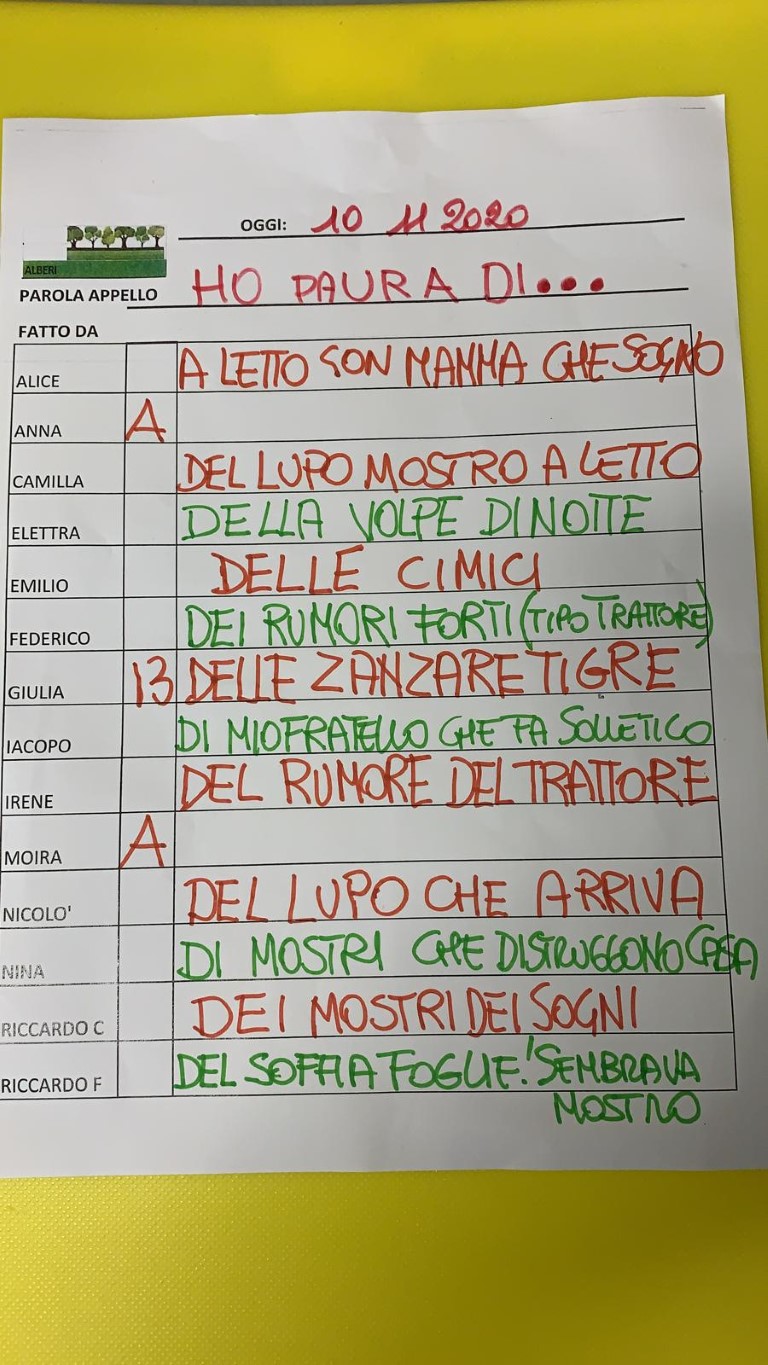 OGGI: 10 11 2020
ALBERI
PAROLA APPELLO HO PAURA DI...
FATTO DA
ALICE A LETTO CON MAMMA CHE SOGNO
ANNA A
CAMILLA DEL LUPO MOSTRO A LETTO
ELETTRA DELLA VOLPE DI NOTTE
EMILIO DELLE CIMICI
FEDERICO DEI RUMORI FORTI (TIPO TRATTORE)
GIULIA 13 DELLE ZANZARE TIGRE
IACOPO DI MIO FRATELLO CHE FA SOLLETICO
IRENE DEL RUMORE DEL TRATTORE
MOIRA A
NICOLO' DEL LUPO CHE ARRIVA
NINA DI MOSTRI CHE DISTRUGGONO CASA
RICCARDO C DEI MOSTRI DEI SOGNI
RICCARDO F DEL SOFFIA FOGLIE! SEMBRAVA
MOSTRO